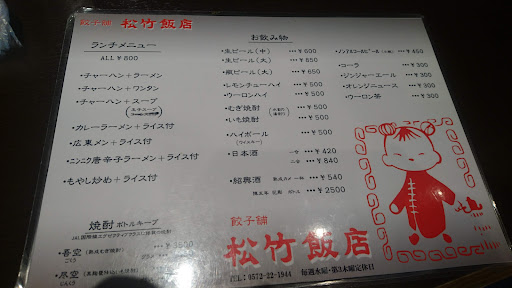 餃子舗 松竹飯店
ランチメニュー
ALL ¥800
・チャーハン+ラーメン
・チャーハン+ワンタン
・チャーハン+スープ
・カレーラーメン+ライス付
・広東メン+ライス付
・ニンニク唐辛子ラーメン+ライス付
・もやし炒め+ライス付
焼酎 ボトルキープ
お飲み物
・生ビール(中) …¥600
・生ビール(大) …¥850
・瓶ビール(大) …¥650
・レモンチューハイ …¥500
・ウーロンハイ …¥500
・むぎ焼酎
・いも焼酎 …¥500
・ハイボール …¥500
(ウィスキー)
・日本酒 一合 …¥420
二合 …¥840
・紹興酒 …¥540
ボトル …¥2500
・ノンアルコールビール …¥450
・コーラ …¥300
・ジンジャーエール …¥300
・オレンジジュース …¥300
・ウーロン茶 …¥300
餃子舗
松竹飯店
TEL:0572-22-1944
毎週水曜・第3木曜定休日